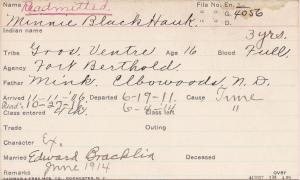 Name Readmitted. File No. En.
Minnie Black Hawk 4056
3 yrs.
Tribe Gros Ventre Age 16 Blood Full.
Agency Fort Berthold.
Father Mink. Elbowoods, N. D.
Arrived 11-11-06 Departed 6-19-11. Cause Time
6-16-14 "
Class entered 4th
Trade Outing
Character Ex.
Married Edward Bracklin Deceased
June 1914
Remarks OVER